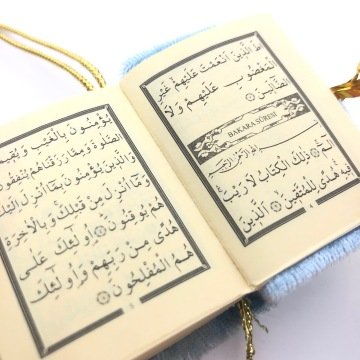 طَ الَّذِينَ اَنْعَمْتَ عَلَيْهِمْ غَيْرِ
الْمَغْضُوبِ عَلَيْهِمْ وَلَا
الضَّالِّينَ
BAKARA SÛRESİ
بِسْمِ اللهِ الرَّحْمٰنِ الرَّحِيمِ
الٓمٓ ذٰلِكَ الْكِتَابُ لَا رَيْبَ
فِيهِ هُدًى لِلْمُتَّقِينَ اَلَّذِينَ
4
يُؤْمِنُونَ بِالْغَيْبِ وَيُقِيمُ
الصَّلٰوةَ وَمِمَّا رَزَقْنَاهُمْ يُنْفِقُونَ
وَالَّذِينَ يُؤْمِنُونَ بِمَا اُنْزِلَ اِلَيْكَ
وَمَا اُنْزِلَ مِنْ قَبْلِكَ وَبِالْاٰخِرَةِ
هُمْ يُوقِنُونَ اُولٰئِكَ عَلٰى
هُدًى مِنْ رَبِّهِمْ وَاُولٰئِكَ
هُمُ الْمُفْلِحُونَ
5